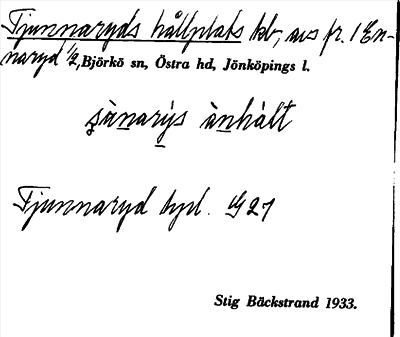 Tjunnaryds hållplats kb, avs fr. 1 En-
naryd 1/2, Björkö sn, Östra hd, Jönköpings l.
şànarỳs ànhàlt
Tjunnaryd hpl. G 21
Stig Bäckstrand 1933.